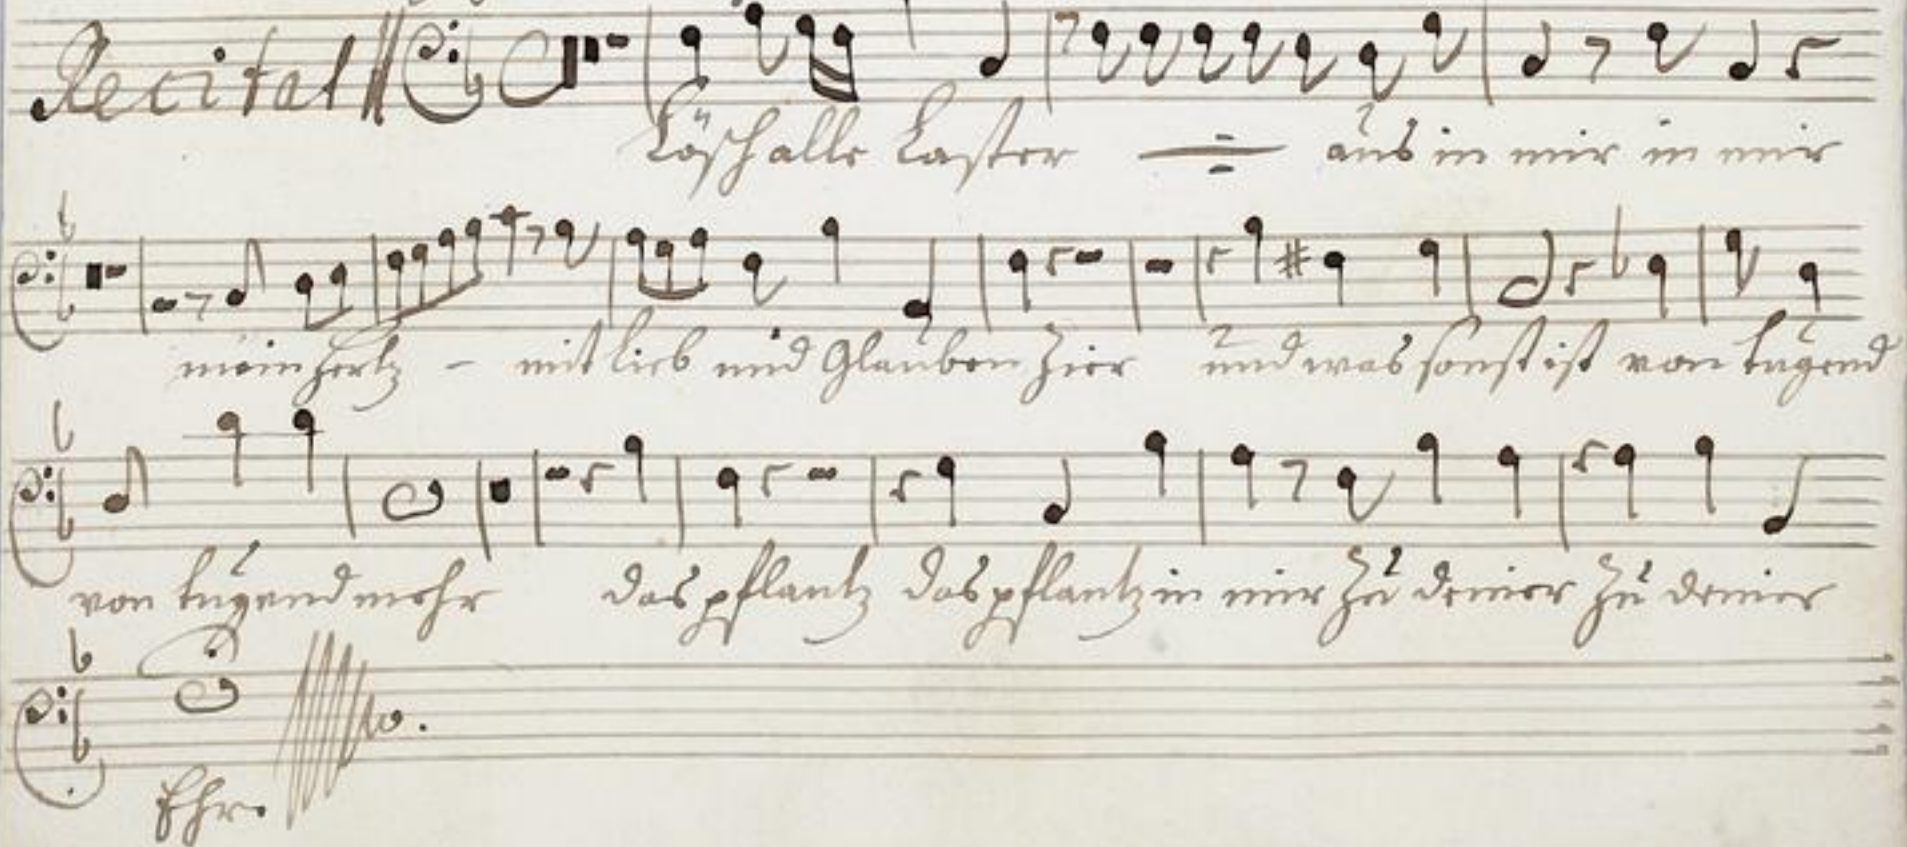 Recitat
Lösch alle Laster ÷ aus in mir in mir
mein Hertz – mit Lieb und Glauben Zier und was sonst ist von tugend
von tugend mehr das pflantz das pflantz in mir zu deiner zu deiner
Ehr.